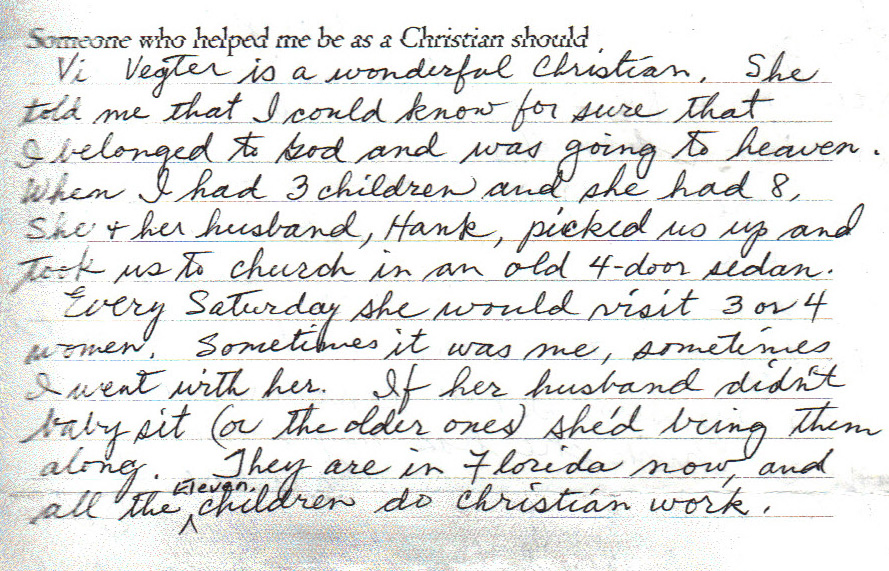 Someone who helped me be as a Christian should
Vi Vegter is a wonderful Christian. She
told me that I could know for sure that
I belonged to God and was going to heaven.
When I had 3 children and she had 8,
She & her husband, Hank, picked us up and
took us to church in an old 4-door sedan.
Every Saturday she would visit 3 or 4
women. Sometimes it was me, sometimes
I went with her. If her husband didn't
baby sit (or the older ones) she'd bring them
along. They are in Florida now, and
all the Eleven children do christian work.